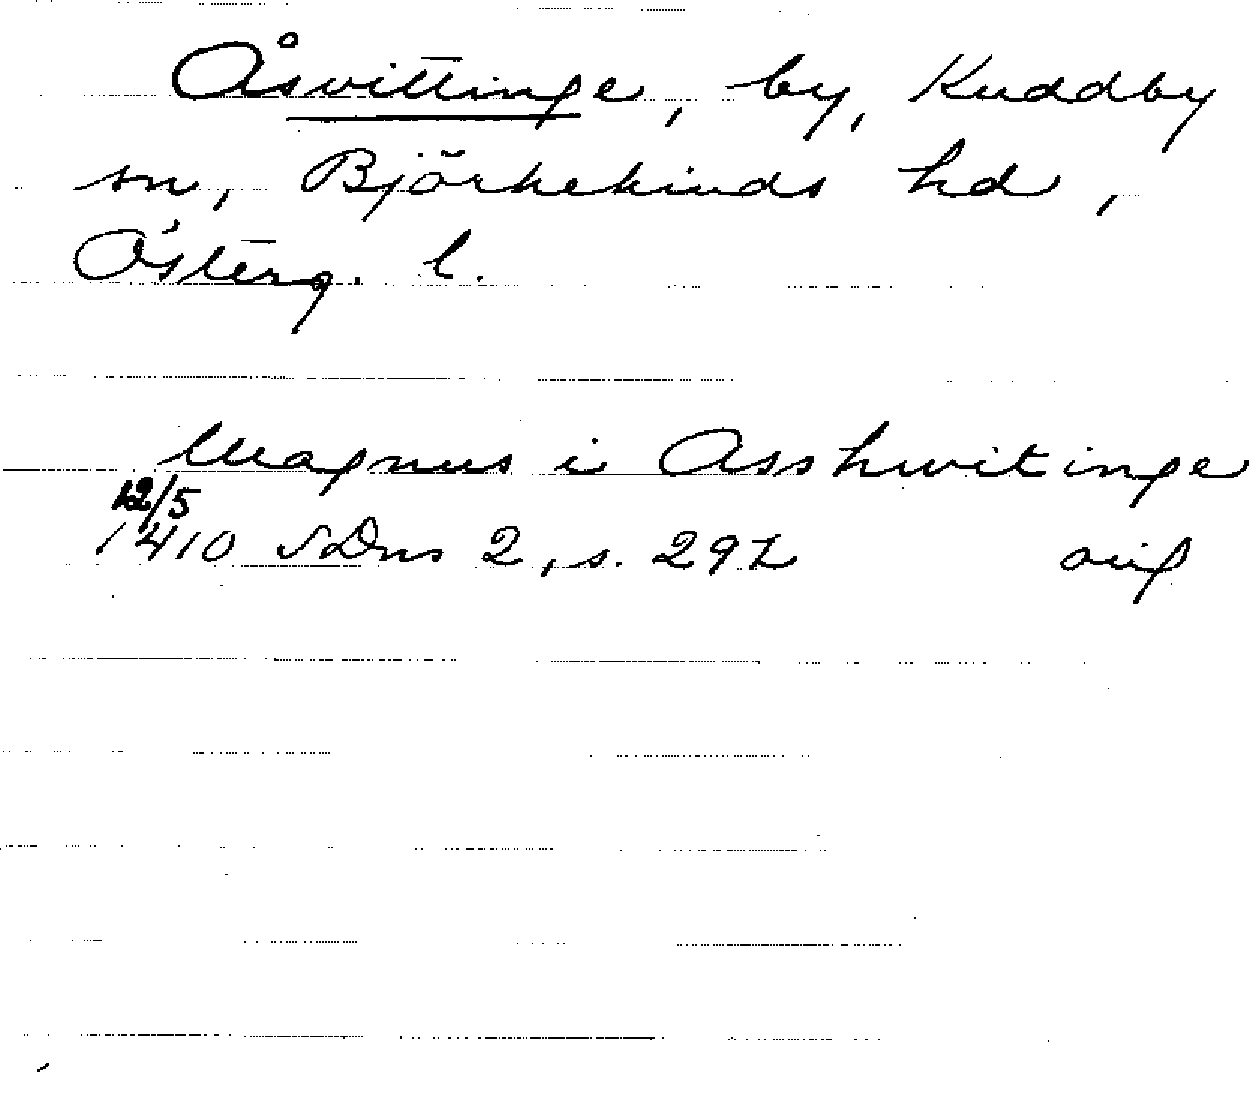 Åsvittinge, by, Kuddby
sn, Björkekinds hd,
Österg. l.
Magnus i Asshwitinge
12/5
1410 SDns 2, s. 292 orig